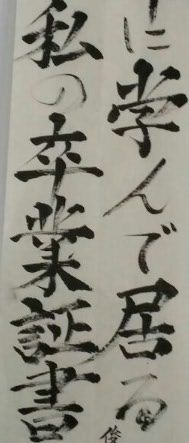 に学んで居る
私の卒業証書
俊